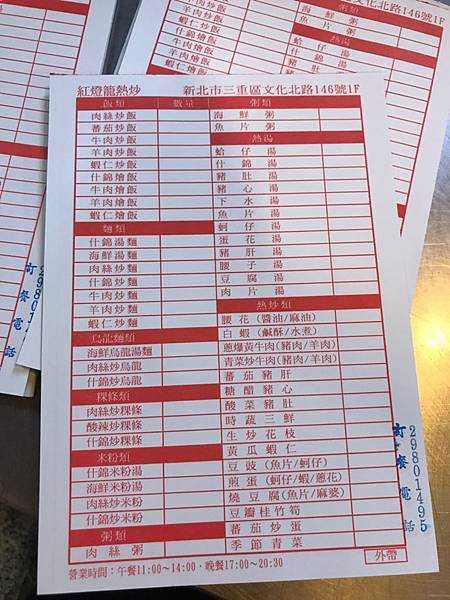 紅燈籠熱炒 新北市三重區文化北路146號1F
飯類 數量
肉絲炒飯
蕃茄炒飯
牛肉炒飯
羊肉炒飯
蝦仁炒飯
什錦燴飯
牛肉燴飯
羊肉燴飯
蝦仁燴飯
麵類
什錦湯麵
海鮮湯麵
肉絲炒麵
什錦炒麵
牛肉炒麵
羊肉炒麵
蝦仁炒麵
烏龍麵類
海鮮烏龍湯麵
肉絲炒烏龍
什錦炒烏龍
粿條類
肉絲炒粿條
酸辣炒粿條
什錦炒粿條
米粉類
什錦米粉湯
海鮮米粉湯
肉絲炒米粉
什錦炒米粉
粥類
肉絲粥
粥類
海鮮粥
魚片粥
熱湯
蛤仔湯
什錦湯
豬肚湯
豬心湯
下水湯
魚片湯
蚵仔湯
蛋花湯
豬肝湯
腰子湯
豆腐湯
肉片湯
熱炒類
腰花(醬油/麻油)
白蝦(鹹酥/水煮)
蔥爆黃牛肉(豬肉/羊肉)
青菜炒牛肉(豬肉/羊肉)
蕃茄豬肝
糖醋豬心
酸菜豬肚
時蔬三鮮
生炒花枝
黃瓜蝦仁
豆豉(魚片/蚵仔)
煎蛋(蚵仔/蝦/蔥花)
燒豆腐(魚片/麻婆)
豆瓣桂竹筍
蕃茄炒蛋
季節青菜
外帶
營業時間：午餐11:00～14:00，晚餐17:00～20:30
訂餐電話
29801495
化北路146號1F
粥類
海鮮粥
魚片粥
熱湯
蛤仔湯
什錦湯
豬肚湯
羊肉炒飯
蝦仁炒飯
什錦燴飯
牛肉燴飯
羊肉燴飯
蝦仁燴飯
訂餐電話